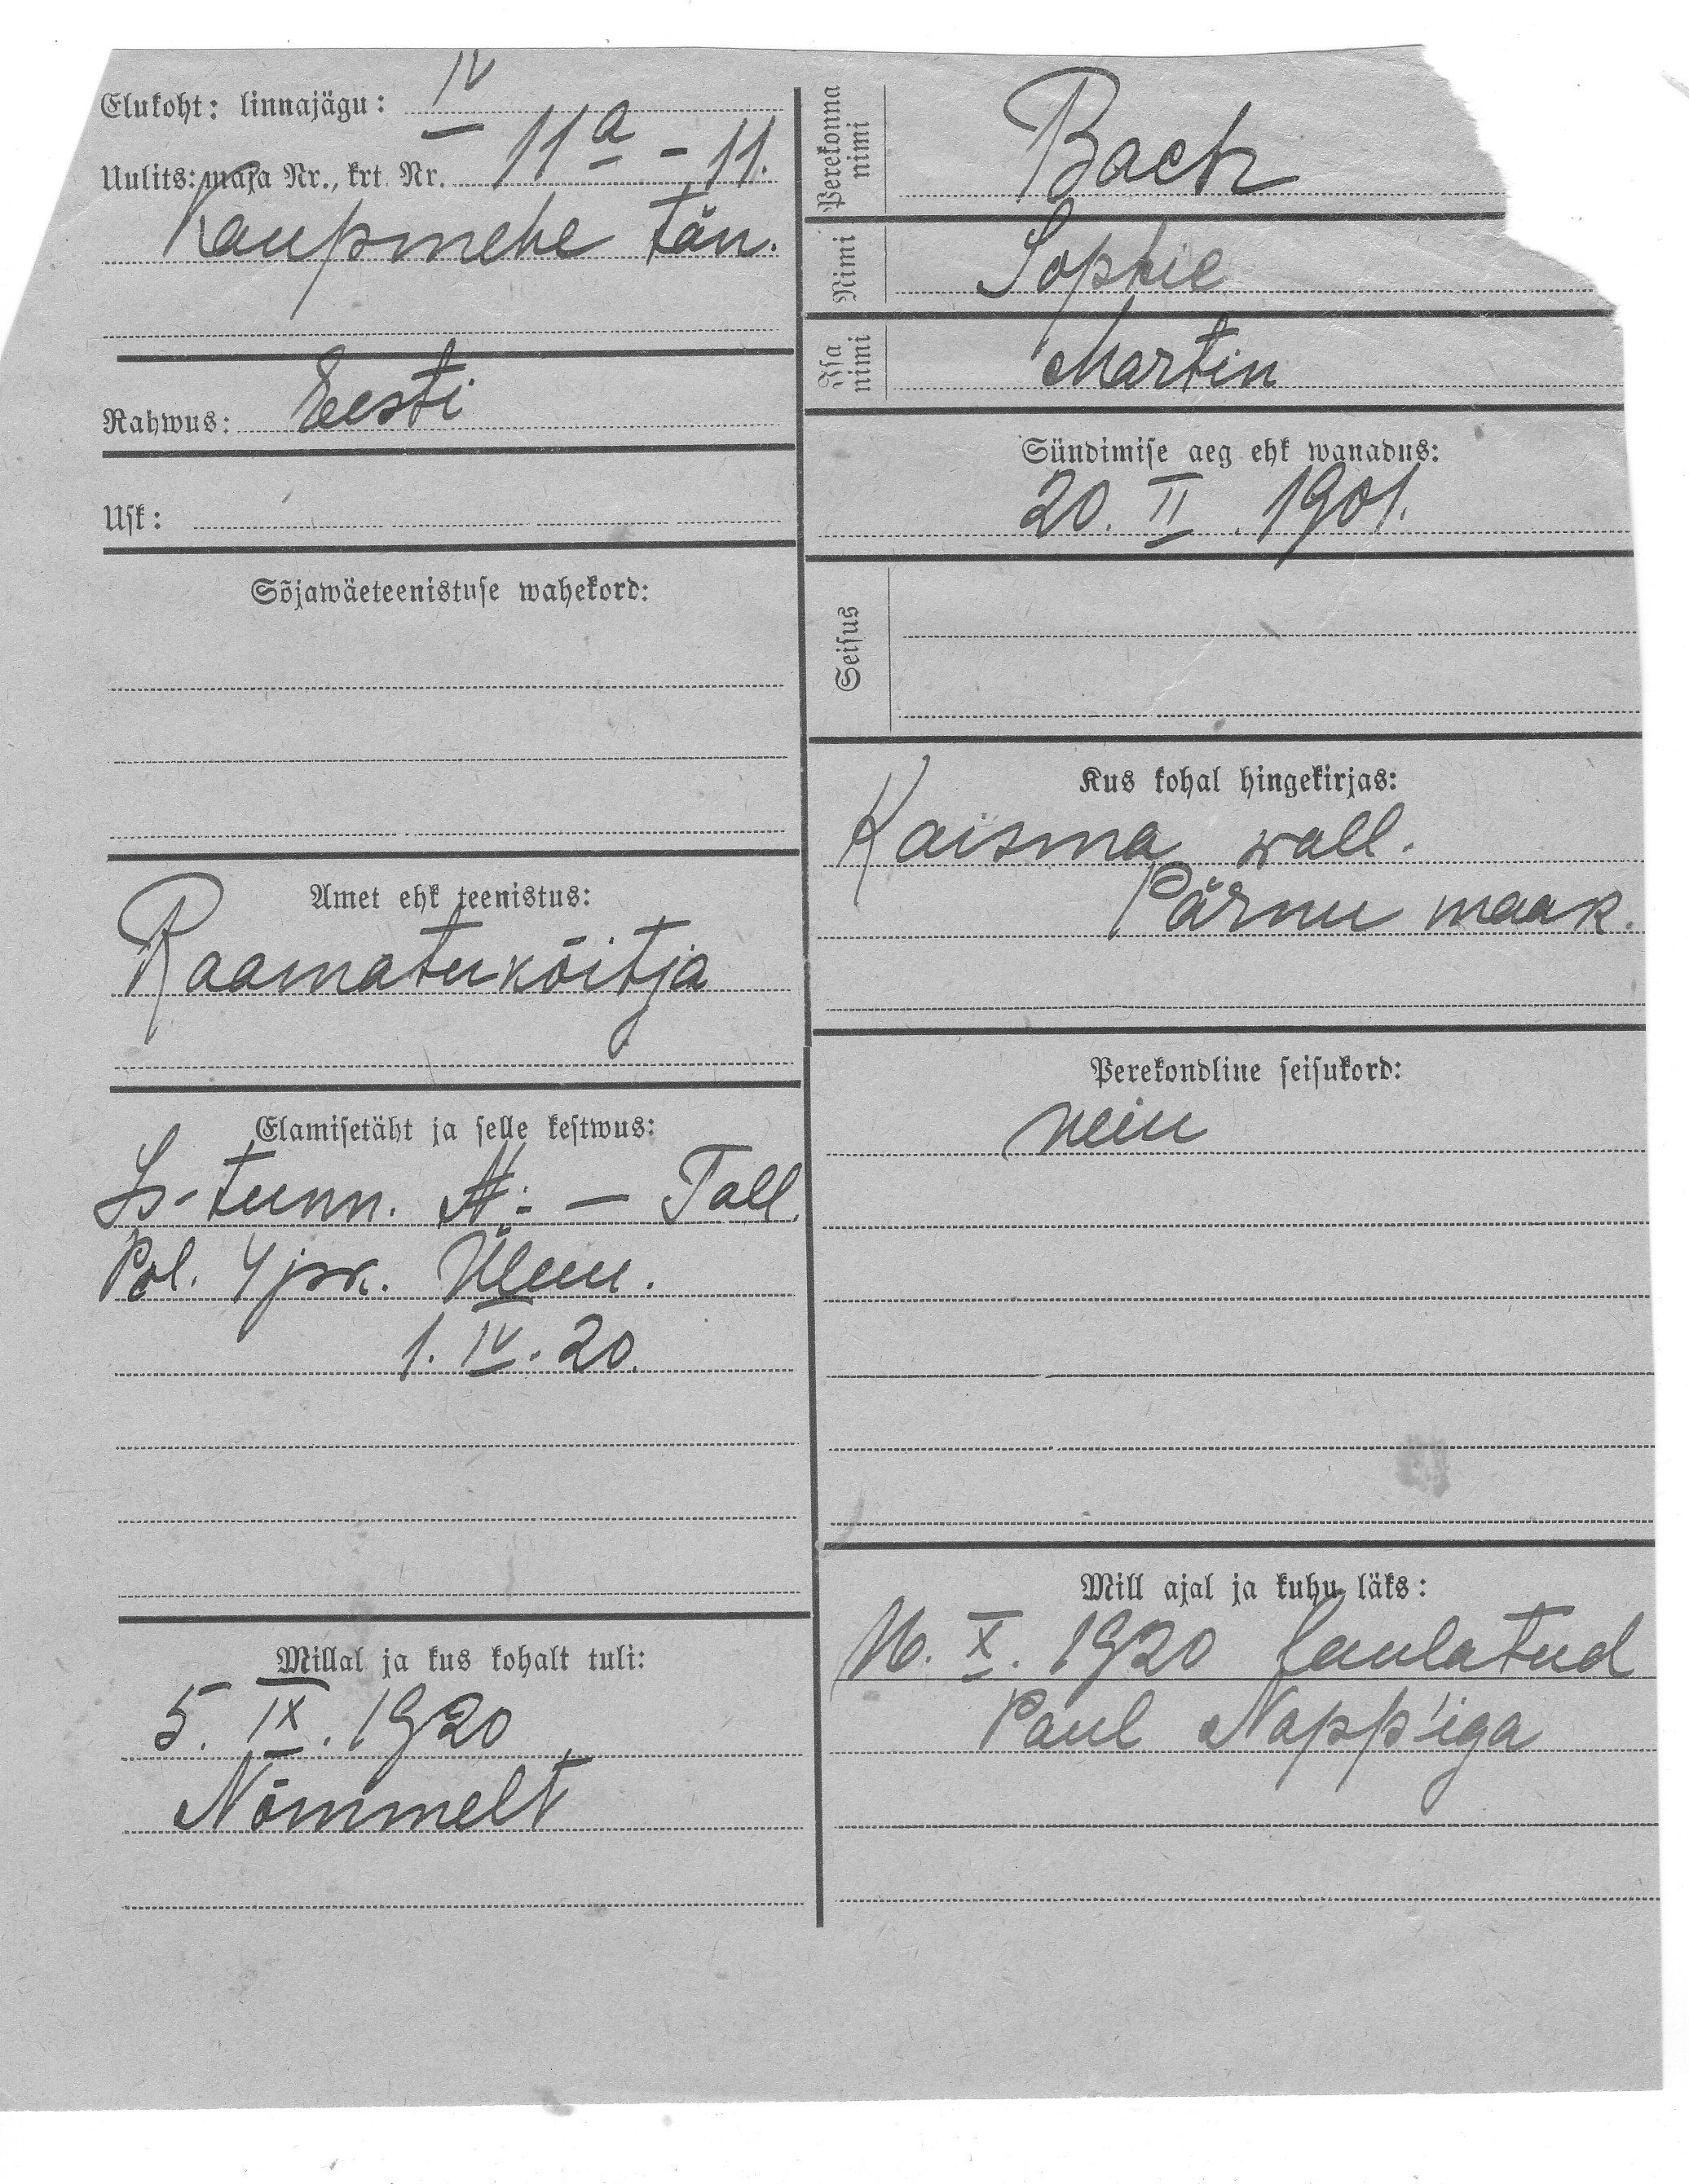 Elukoht: linnajägu: IV
Uulits: maja Nr., krt. Nr. 11a - 11.
Kaupmehe tän.
Rahwus: Eesti
Usk:
Sõjawäeteenistuse wahekord:
Amet ehk teenistus:
Raamatuköitja
Elamisetäht ja selle kestwus:
Is-tunn. №: — Tall.
Pol. 4 jsk. Ülem.
1. IV. 20.
Millal ja kus kohalt tuli:
5. IX. 1920
Nõmmelt
Perekonna nimi Bach
Nimi Sophie
Isa nimi Martin
Sündimise aeg ehk wanadus:
20. II. 1901.
Seisus
Kus kohal hingekirjas:
Kaisma wall.
Pärnu maak.
Perekondline seisukord:
neiu
Mill ajal ja kuhu läks:
16. X. 1920 laulatud
Paul Napp'iga